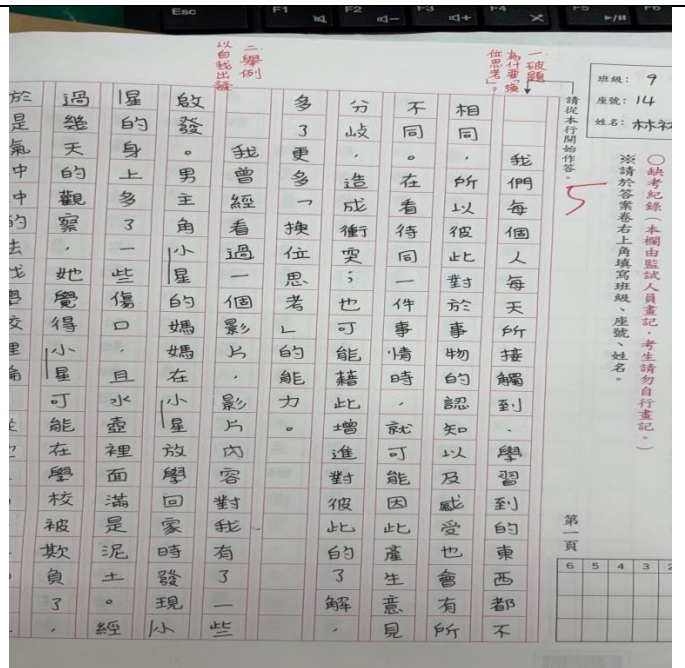 Esc F1 F2 F3 F4 F5 F6
班級：9
座號：14
姓名：林
○缺考紀錄（本欄由監試人員畫記，考生請勿自行畫記。）
※請於答案卷右上角填寫班級、座號、姓名。
請從本行開始作答。
第一頁
6 5 4 3 2
5
一破題
為什麼「換位思考」？
我們每個人每天所接觸到、學習到的東西都不
相同，所以彼此對於事物的認知以及感受也會有所
不同。在看待同一件事情時，就可能因此產生意見
分歧，造成衝突；也可能藉此增進對彼此的了解，
多了更多「換位思考」的能力。
二舉例
以自我出發
我曾經看過一個影片，影片內容對我有了一些
啟發。男主角小星的媽媽在小星放學回家時發現小
星的身上多了一些傷口，且水壺裡面滿是泥土。經
過幾天的觀察，她覺得小星可能在學校被欺負了，
於是氣中中的去找學校理